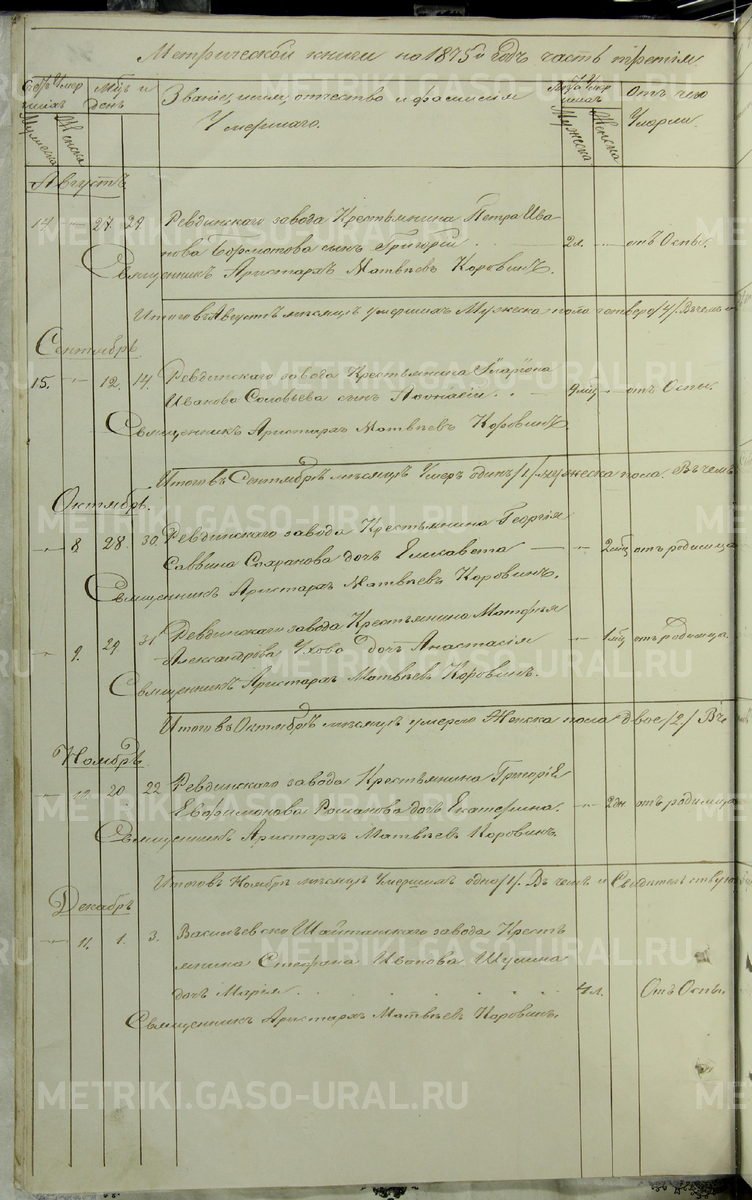 Метрической книги на 1875й годъ часть третія.
Счетъ умершихъ
Мужеска
Женска
Мѣс. и день
Званіе, имя, отчество и фамилія
Умершаго.
Лѣта умершихъ
Мужеска
Женска
Отъ чего
Умерли.
Августъ
14 " 27 29 Ревдинскаго завода Крестьянина Петра Ива-
нова сынъ Григорій. 2 л. отъ Оспы.
Священникъ Аристархъ Матвѣевъ Коровинъ.
Итого въ Августѣ мѣсяцѣ умершихъ Мужеска пола четверо /4/. Въ чемъ и
Сентябрь.
15. " 12. 14. Ревдинскаго завода Крестьянина
Иванова Соловьева сынъ отъ Оспы.
Священникъ Аристархъ Матвѣевъ Коровинъ
Итого въ Сентябрѣ мѣсяцѣ Умеръ одинъ /1/ мужеска пола. Въ чемъ
Октябрь.
" 8. 28. 30. Ревдинскаго завода Крестьянина Георгія
Саввина дочь Елисавета " 2 мѣс отъ родимца
Священникъ Аристархъ Матвѣевъ Коровинъ.
" 9. 29 31. Ревдинскаго завода Крестьянина
Александрова дочь Анастасія " 1 мѣс отъ родимца.
Священникъ Аристархъ Матвѣевъ Коровинъ.
Итого въ Октябрѣ мѣсяцѣ умерло Женска пола двое /2/ Въ че
Ноябрь
" 20. 22 Ревдинскаго завода Крестьянина Григорія
Романова дочь Екатерина. " 2 дн отъ родимца
Священникъ Аристархъ Матвѣевъ Коровинъ.
Итого въ Ноябрѣ мѣсяцѣ Умершихъ одно /1/. Въ чемъ и Свидѣтельствую
Декабрь
" 11. 1. 3. Васильевско Шайтанскаго завода Кресть
янина Стефана Иванова Шулина
дочь Марія 4 л. Отъ Оспы.
Священникъ Аристархъ Матвѣевъ Коровинъ.
METRIKI.GASO-URAL.RU